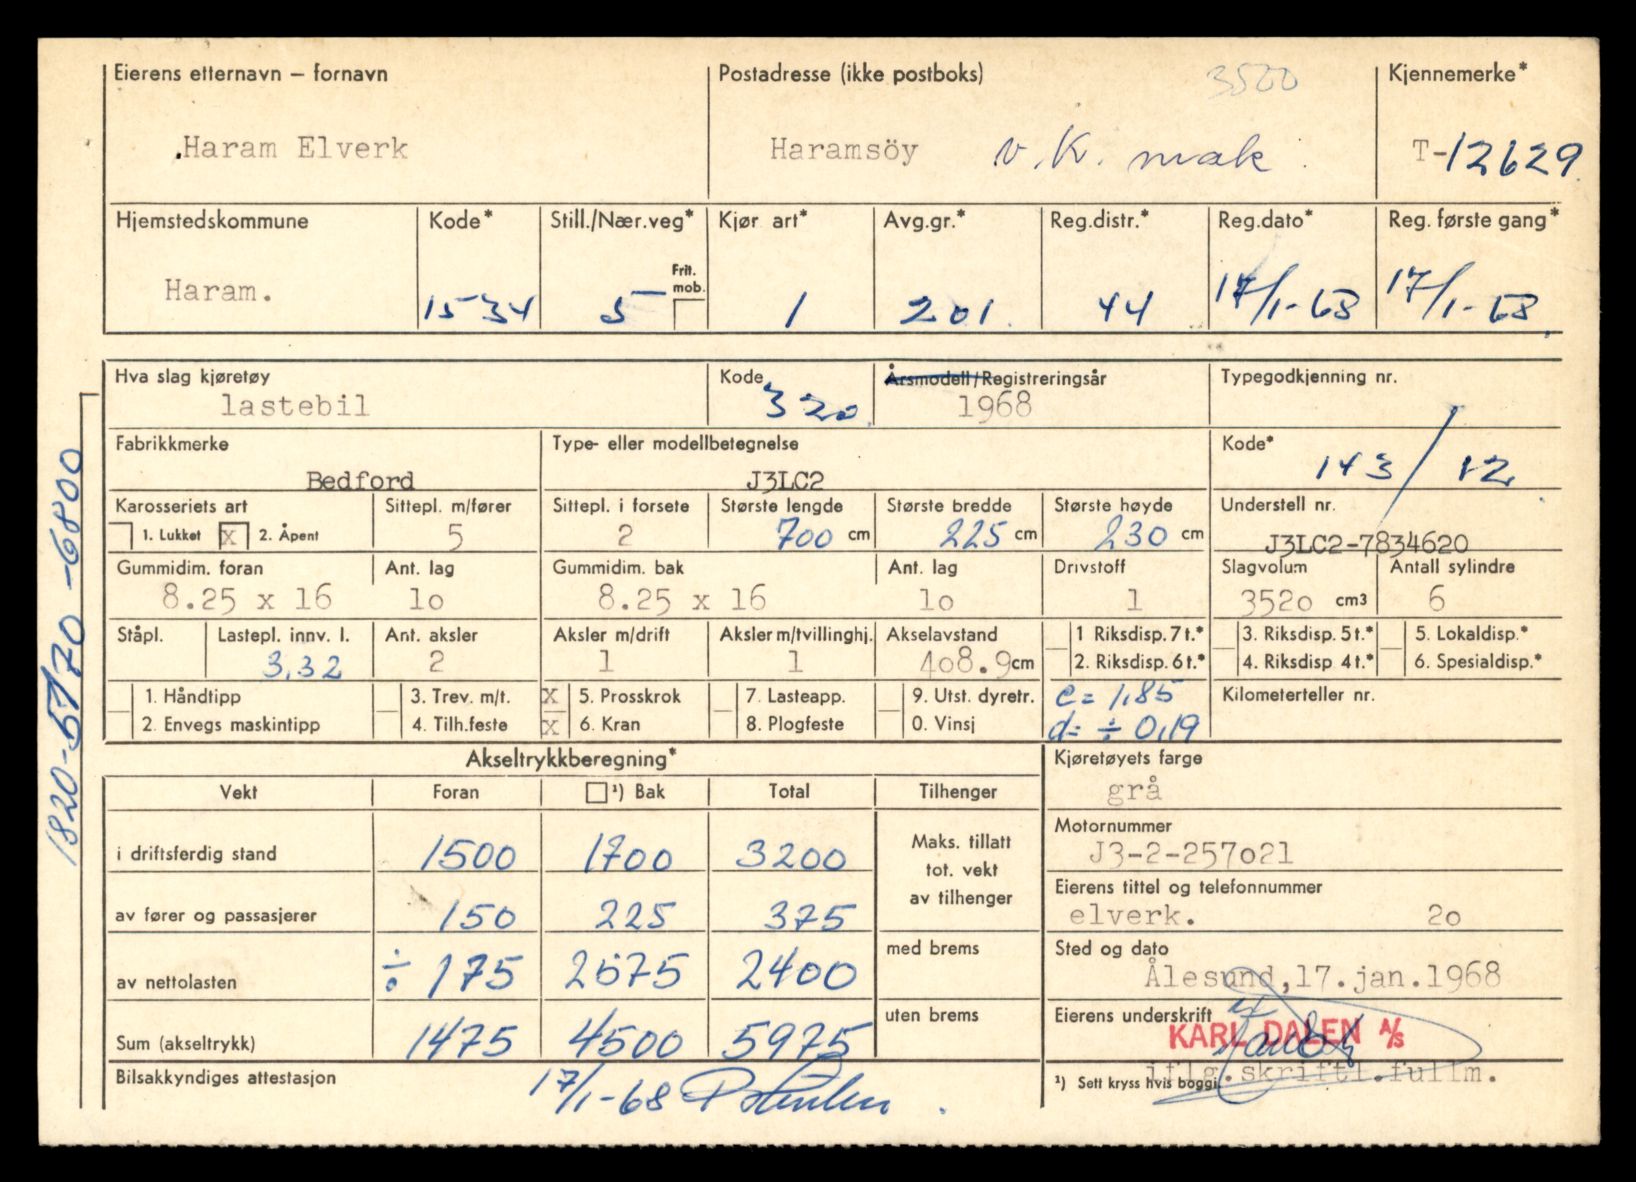 Eierens etternavn – fornavn Postadresse (ikke postboks) 3500 Kjennemerke*
Haram Elverk Haramsöy v.K. mak. T-12629
Hjemstedskommune Kode* Still./Nær.veg* Kjør art* Avg.gr.* Reg.distr.* Reg.dato* Reg. første gang*
Frit. mob.
Haram. 1534 5 1 201. 44 17/1-68 17/1-68.
Hva slag kjøretøy Kode Årsmodell/Registreringsår Typegodkjenning nr.
lastebil 320 1968
Fabrikkmerke Type- eller modellbetegnelse Kode*
Bedford J3LC2 143 / 12
Karosseriets art Sittepl. m/fører Sittepl. i forsete Største lengde Største bredde Største høyde Understell nr.
1. Lukket x 2. Åpent 5 2 700 cm 225 cm 230 cm J3LC2-7834620
Gummidim. foran Ant. lag Gummidim. bak Ant. lag Drivstoff Slagvolum Antall sylindre
8.25 x 16 lo 8.25 x 16 lo 1 352o cm3 6
Ståpl. Lastepl. innv. l. Ant. aksler Aksler m/drift Aksler m/tvillinghj. Akselavstand 1 Riksdisp. 7 t.* 3. Riksdisp. 5 t.* 5. Lokaldisp.*
3,32 2 1 1 4o8.9cm 2. Riksdisp. 6 t.* 4. Riksdisp 4 t.* 6. Spesialdisp.*
1. Håndtipp 3. Trev. m/t. x 5. Prosskrok 7. Lasteapp. 9. Utst. dyretr. c = 1,85 Kilometerteller nr.
2. Envegs maskintipp 4. Tilh.feste x 6. Kran 8. Plogfeste 0. Vinsj d = ÷ 0,19
Akseltrykkberegning* Kjøretøyets farge
Vekt Foran ¹) Bak Total Tilhenger grå
i driftsferdig stand 1500 1700 3200 Maks. tillatt tot. vekt av tilhenger Motornummer
J3-2-257o21
Eierens tittel og telefonnummer
av fører og passasjerer 150 225 375 elverk. 2o
med brems Sted og dato
av nettolasten ÷ 175 2575 2400 Ålesund,17.jan.1968
uten brems Eierens underskrift
Sum (akseltrykk) 1475 4500 5975 KARL DALEN A/S
Bilsakkyndiges attestasjon 17/1-68 ¹) Sett kryss hvis boggi iflg.skriftl.fullm.
1820-5170-6800